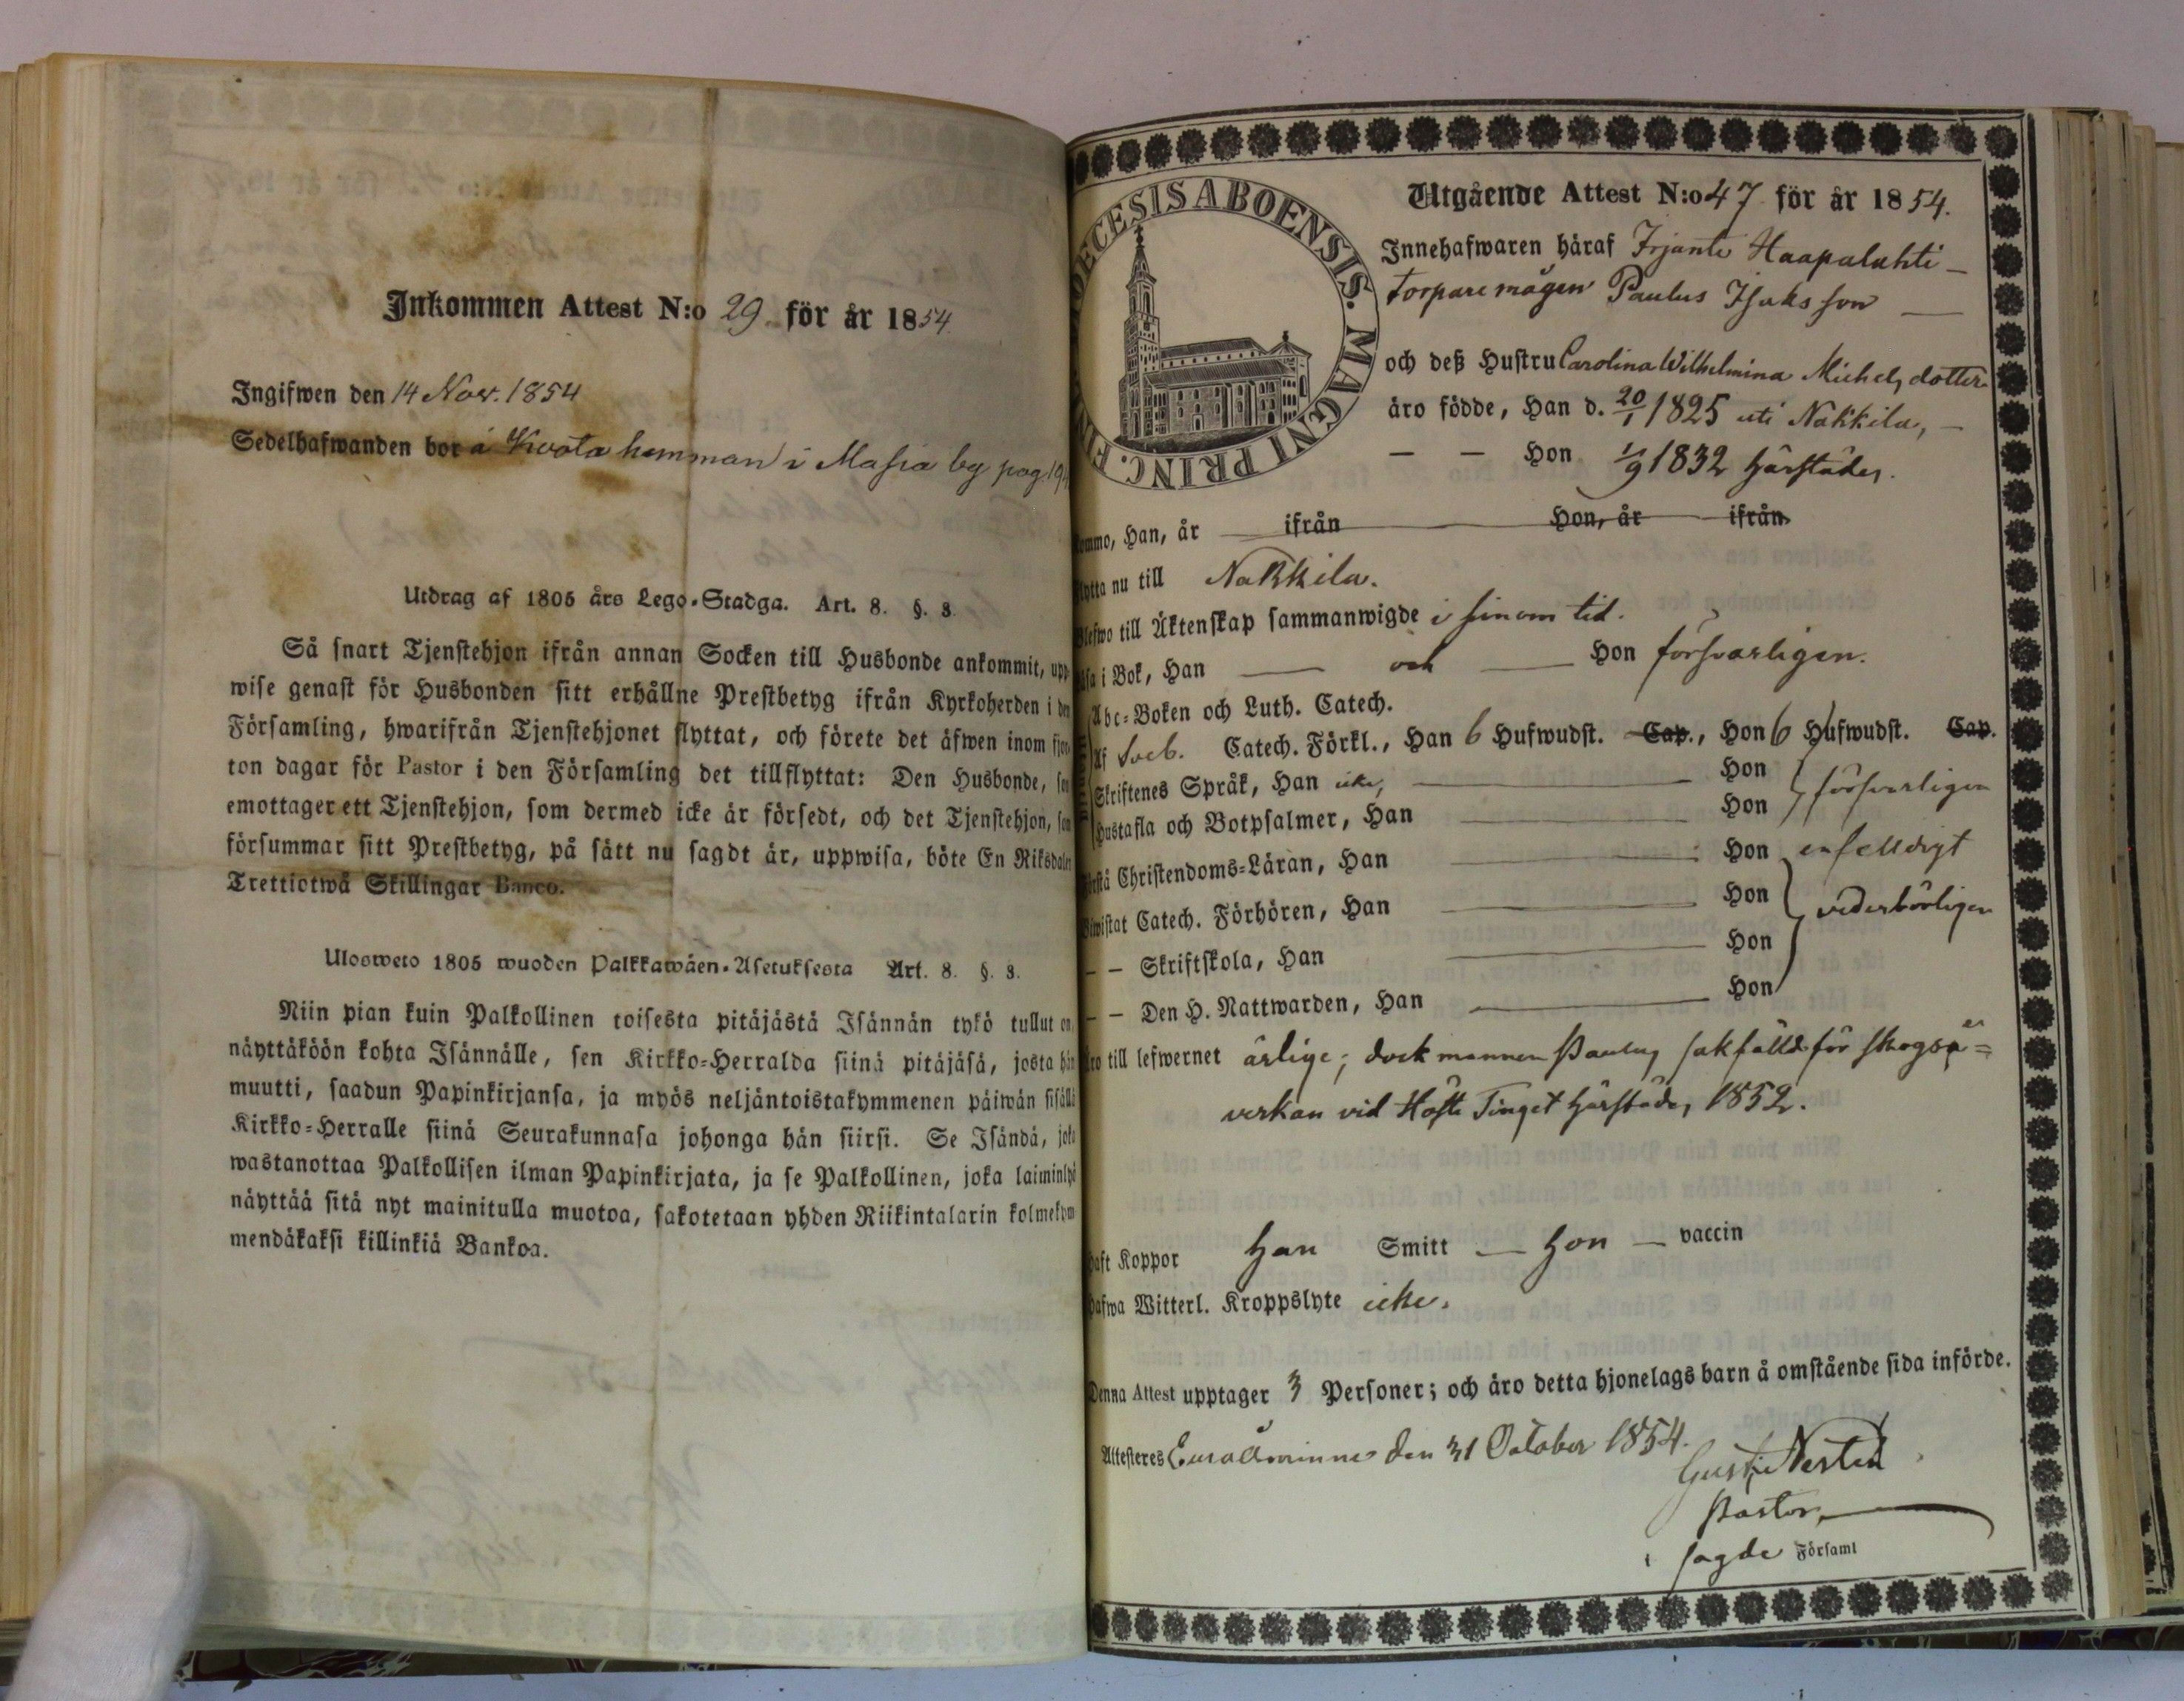 Inkommen Attest N:o 29 för år 1854
Ingifwen den 14 Nov. 1854
Sedelhafwanden bor å Kwota hemman i Masia by pag 19
Utdrag af 1805 års Lego-Stadga. Art. 8. §. 8.
Så snart Tjenstehjon ifrån annan Socken till Husbonde ankommit, upp-
wise genast för Husbonden sitt erhållne Prestbetyg ifrån Kyrkoherden i den
Församling, hwarifrån Tjenstehjonet flyttat, och förete det äfwen inom fjor-
ton dagar för Pastor i den Församling det tillflyttat: Den Husbonde, som
emottager ett Tjenstehjon, som dermed icke är försedt, och det Tjenstehjon, som
försummar sitt Prestbetyg, på sätt nu sagdt är, uppwisa, böte En Riksdaler
Trettiotwå Skillingar Banco.
Ulosweto 1805 wuoden Palkkawäen-Asetuksesta Art. 8. §. 8.
Niin pian kuin Palkollinen toisesta pitäjästä Isännän tykö tullut on,
näyttäköön kohta Isännälle, sen Kirkko-Herralda siinä pitäjäsä, josta hän
muutti, saadun Papinkirjansa, ja myös neljäntoistakymmenen päiwän sisällä
Kirkko-Herralle siinä Seurakunnasa johonga hän siirsi. Se Isändä, joka
wastanottaa Palkollisen ilman Papinkirjata, ja se Palkollinen, joka laiminlyö
näyttää sitä nyt mainitulla muotoa, sakotetaan yhden Riikintalarin kolmekym
mendäkaksi killinkiä Bankoa.
DIOECESIS ABOENSIS. MAGNI PRINC. FIN
Utgående Attest N:o 47 för år 1854.
Innehafwaren häraf Irjante Haapalahti
torpare mågen Paulus Isaksson
och deß Hustru Carolina Wilhelmina Michelsdotter
äro födde, Han d. 20/1 1825 uti Nakkila,
— — Hon 1/9 1832 härstädes.
kommo, Han, år ifrån Hon, år ifrån
flytta nu till Nakkila.
Blefwo till Äktenskap sammanwigde i sinom tid.
Läsa i Bok, Han och Hon försvarligen.
Abc-Boken och Luth. Catech.
Af Sveb. Catech. Förkl., Han 6 Hufwudst. Cap., Hon 6 Hufwudst. Cap.
Skriftenes Språk, Han icke, Hon
Hustafla och Botpsalmer, Han Hon försvarligen
Förstå Christendoms-Läran, Han Hon enfelldigt
Biwistat Catech. Förhören, Han Hon vederbörligen
— — Skriftskola, Han Hon
— — Den H. Nattwarden, Han Hon
Äro till lefwernet ärlige; dock mannen Paulus sakfälld för skogså=
verkan vid Höste Tinget härstädes 1852.
Haft Koppor Han Smitt — Hon — vaccin
Hafwa Witterl. Kroppslyte icke.
Denna Attest upptager 3 Personer; och äro detta hjonelags barn å omstående sida införde.
Attesteres Euraåminne den 31 October 1854.
Gust.
Pastor
i sagde Församl